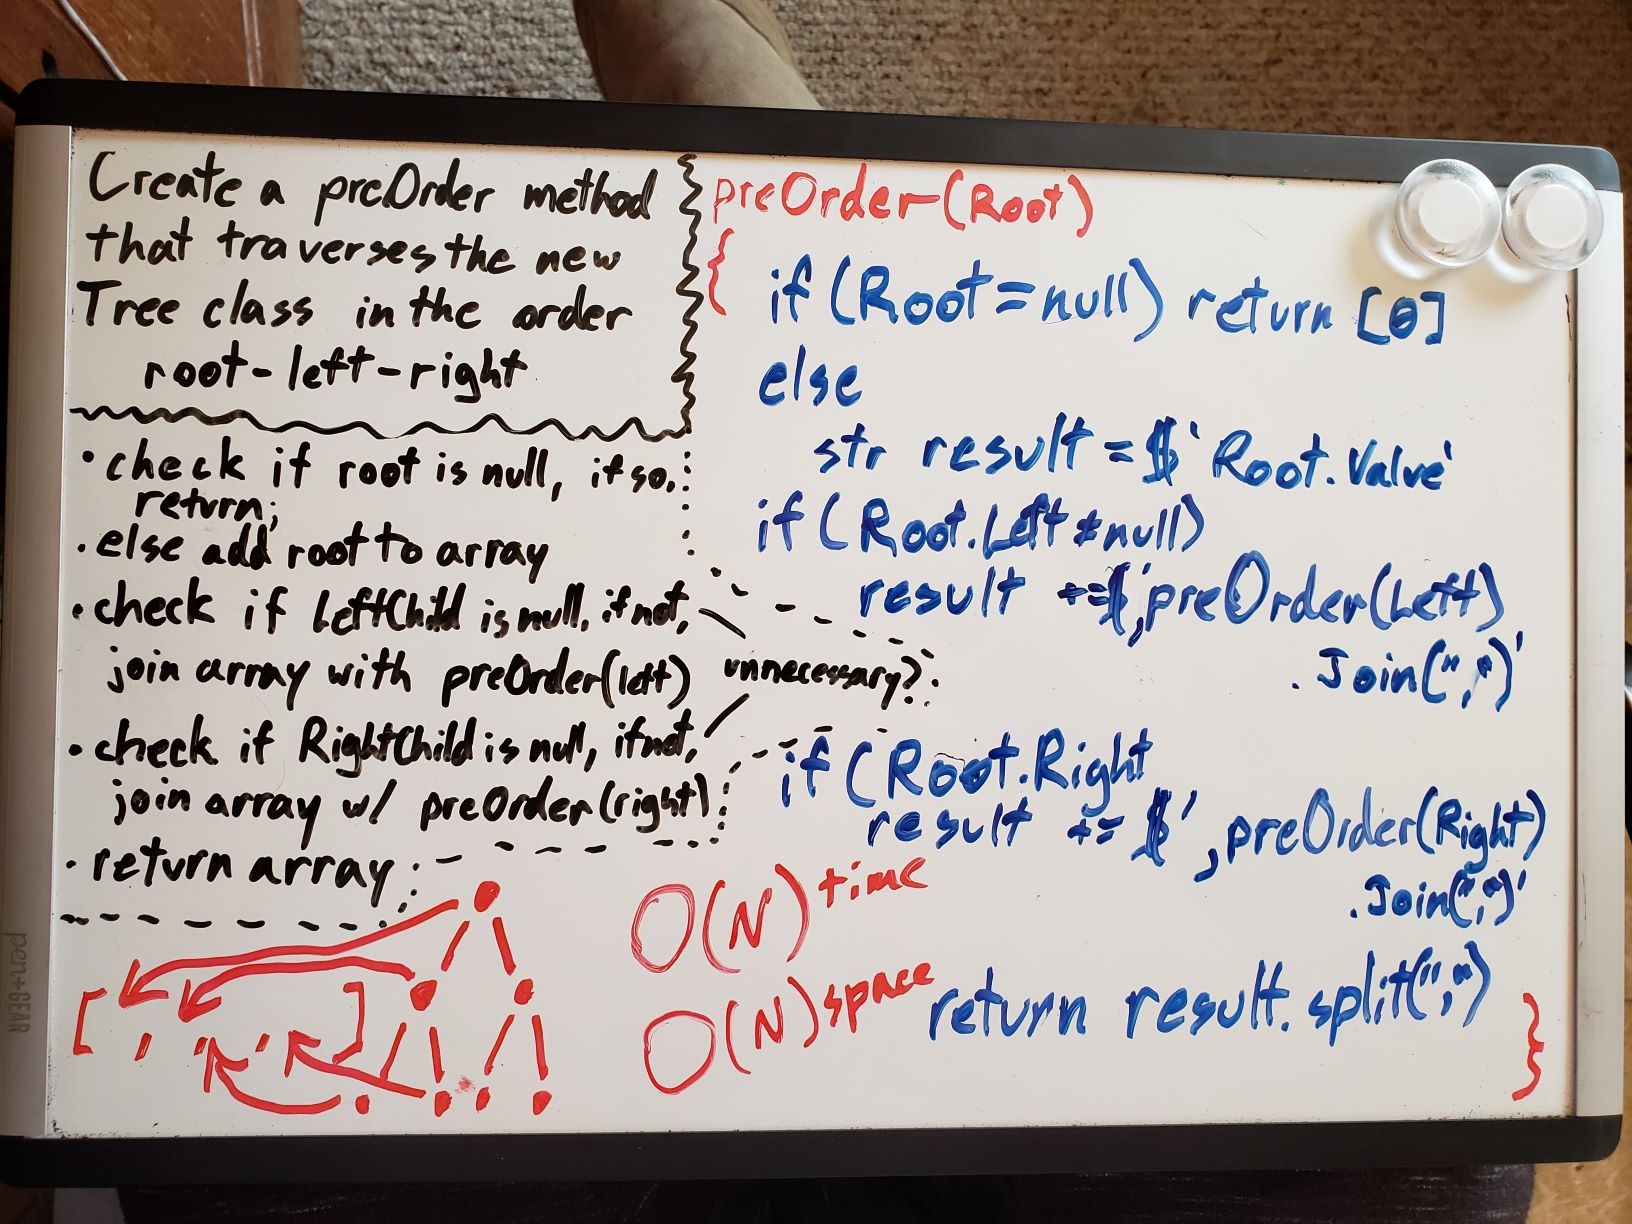 Create a preOrder method
that traverses the new
Tree class in the order
root-left-right
• check if root is null, if so,
return;
• else add root to array
• check if LeftChild is null, if not,
join array with preOrder(left)
unnecessary?
• check if RightChild is null, if not,
join array w/ preOrder(right)
• return array
[ , , , ]
preOrder(Root)
{
if (Root=null) return [0]
else
str result = $'Root.Value'
if (Root.Left ≠ null)
result +=$',preOrder(Left)
.Join(",")'
if (Root.Right
result += $',preOrder(Right)
.Join(",")'
return result.split(",")
}
O(N) time
O(N) space
pen+GEAR